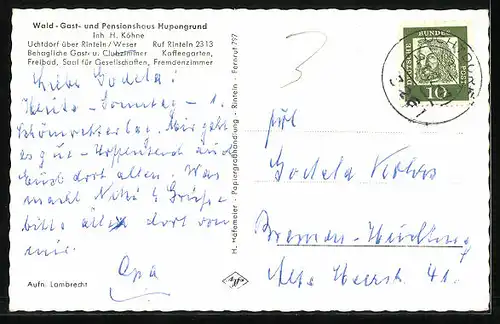 Wald - Gast- und Pensionshaus Hupengrund
Inh. H. Köhne
Uchtdorf über Rinteln / Weser Ruf Rinteln 2313
Behagliche Gast- u. Clubzimmer Kaffeegarten,
Freibad, Saal für Gesellschaften, Fremdenzimmer
3
DEUTSCHE BUNDESPOST
10
Liebe Godela!
Heute - Sonntag - 1.
Schönwettertag. Mir geht
es gut - Hoffentlich auch
Euch dort allen. Was
macht Grüße
bitte alle dort von
mir.
Opa
Für
Godela
Bremen-Huchting
Alte Heerstr. 41.
H. Hofemeier - Papiergroßhandlung - Rinteln - Fernruf 797
Agfa
Aufn. Lambrecht